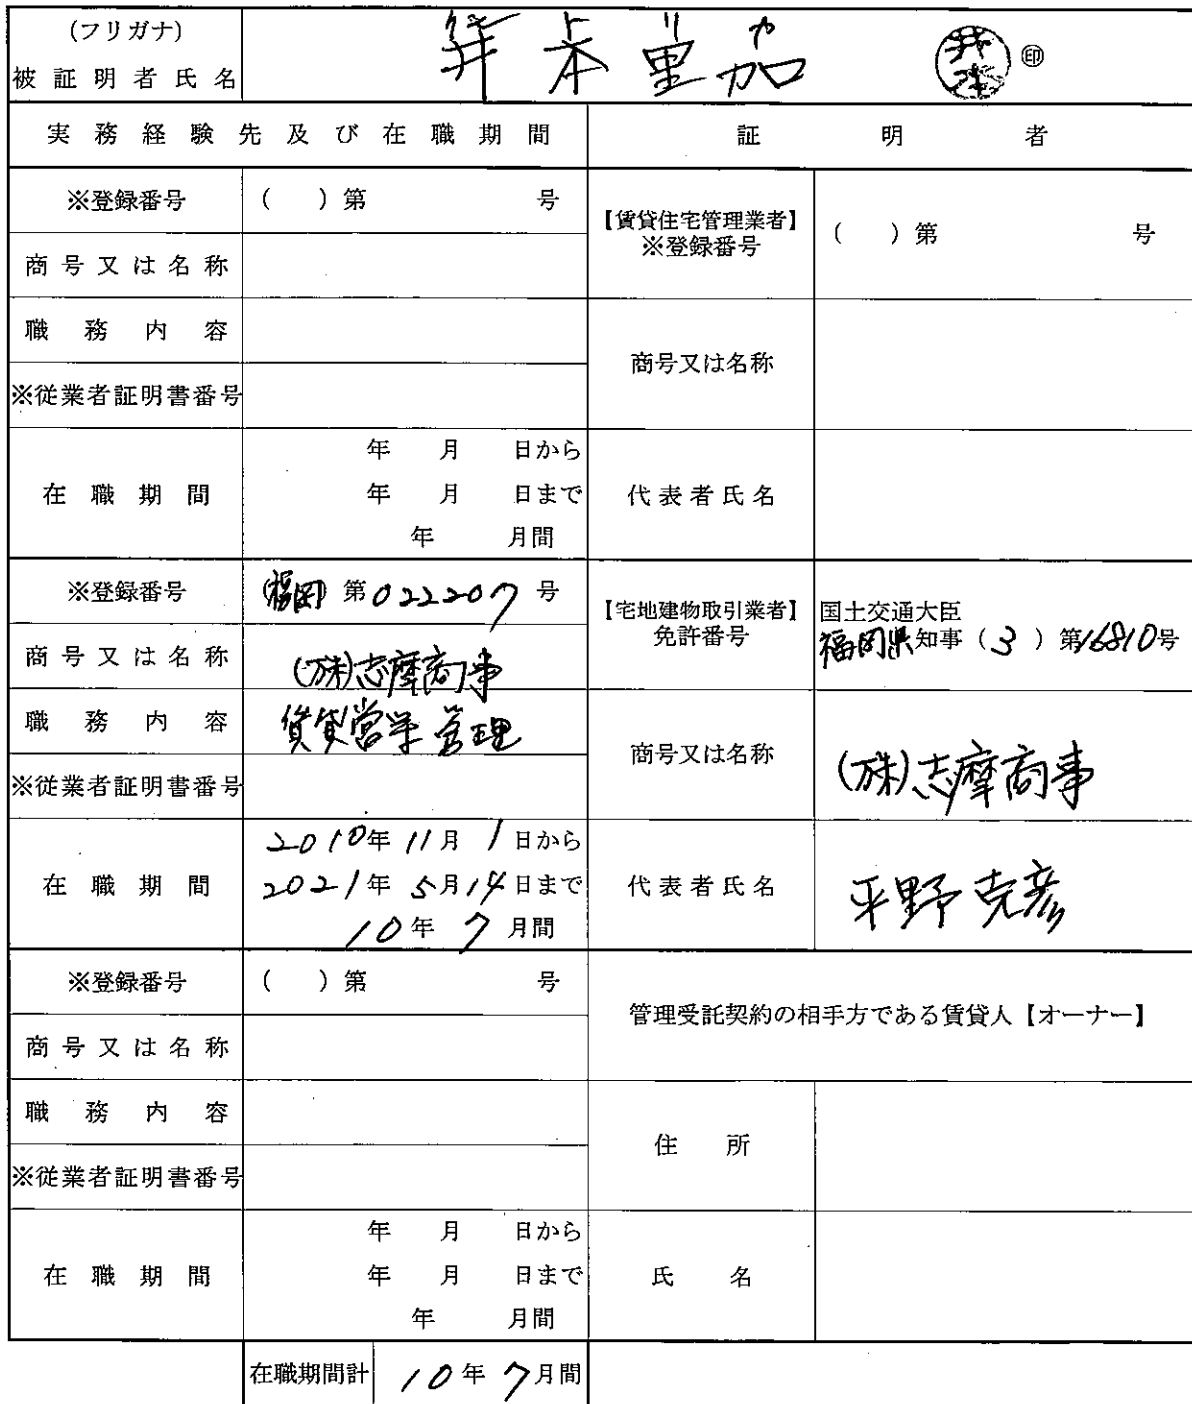 (フリガナ)
被証明者氏名
井本里加
井本 ㊞
実務経験先及び在職期間
証明者
※登録番号 ( ) 第 号
商号又は名称
職務内容
※従業者証明書番号
在職期間
年 月 日から
年 月 日まで
年 月間
【賃貸住宅管理業者】
※登録番号
( ) 第 号
商号又は名称
代表者氏名
※登録番号 (福岡) 第022207号
商号又は名称 (株)志摩商事
職務内容 賃貸営業 管理
※従業者証明書番号
在職期間
2010年 11月 1日から
2021年 5月14日まで
10年 7月間
【宅地建物取引業者】
免許番号
国土交通大臣
福岡県知事 (3) 第16810号
商号又は名称 (株)志摩商事
代表者氏名 平野克彦
※登録番号 ( ) 第 号
商号又は名称
職務内容
※従業者証明書番号
在職期間
年 月 日から
年 月 日まで
年 月間
管理受託契約の相手方である賃貸人【オーナー】
住所
氏名
在職期間計 10年 7月間